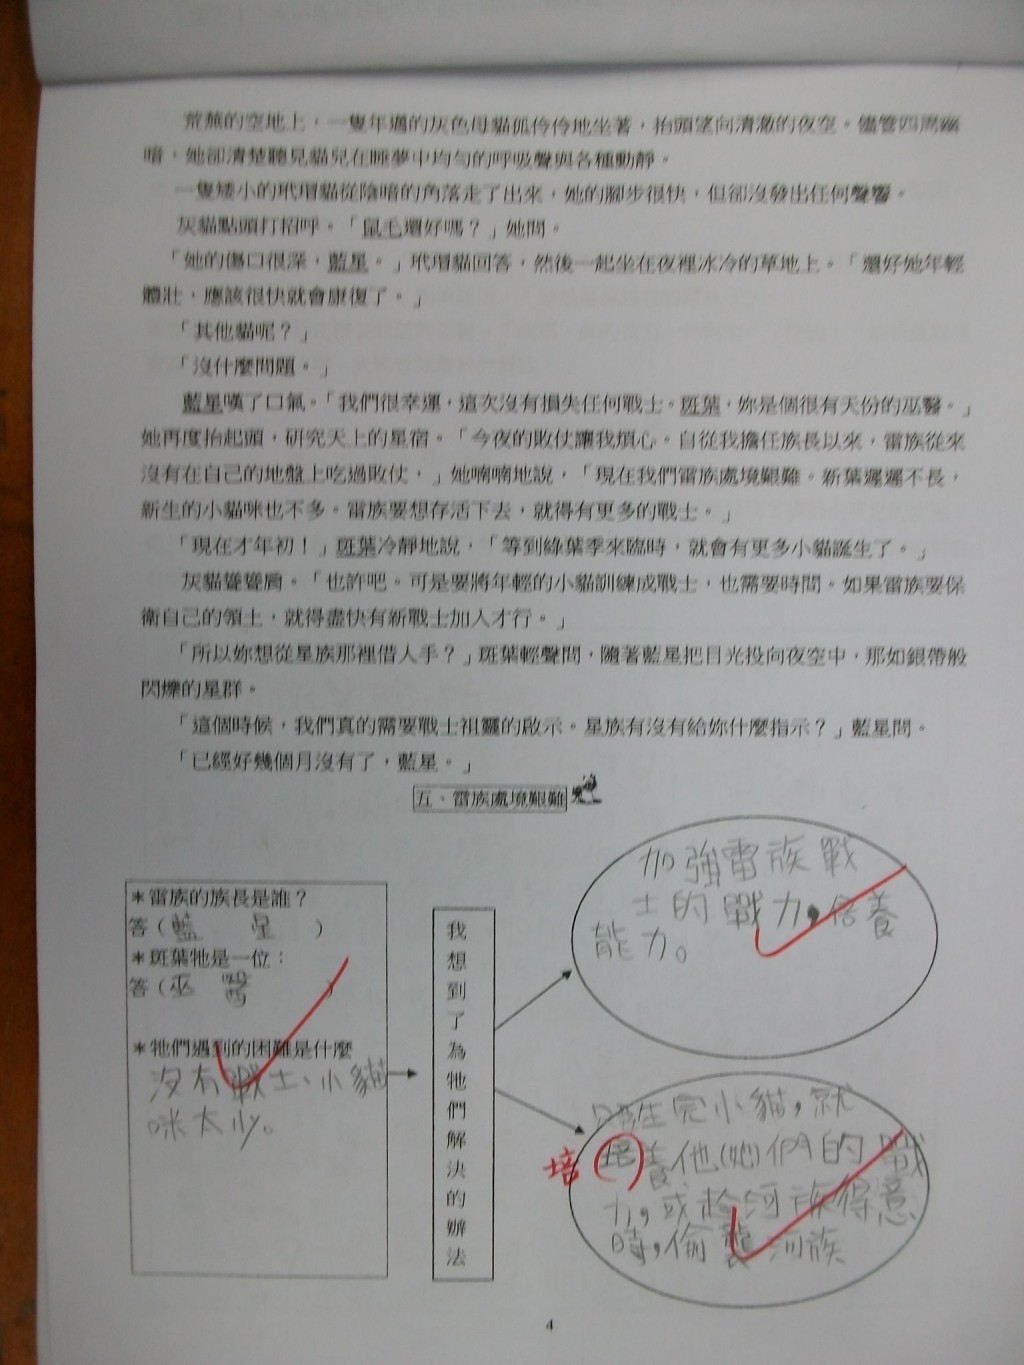 荒蕪的空地上，一隻年邁的灰色母貓孤伶伶地坐著，抬頭望向清澈的夜空。儘管四周幽
暗，她卻清楚聽見貓兒在睡夢中均勻的呼吸聲與各種動靜。
一隻矮小的玳瑁貓從陰暗的角落走了出來，她的腳步很快，但卻沒發出任何聲響。
灰貓點頭打招呼。「鼠毛還好嗎？」她問。
「她的傷口很深，藍星。」玳瑁貓回答，然後一起坐在夜裡冰冷的草地上。「還好她年輕
體壯，應該很快就會康復了。」
「其他貓呢？」
「沒什麼問題。」
藍星嘆了口氣。「我們很幸運，這次沒有損失任何戰士。斑葉，妳是個很有天份的巫醫。」
她再度抬起頭，研究天上的星宿。「今夜的敗仗讓我煩心。自從我擔任族長以來，雷族從來
沒有在自己的地盤上吃過敗仗，」她喃喃地說，「現在我們雷族處境艱難。新葉遲遲不長，
新生的小貓咪也不多。雷族要想存活下去，就得有更多的戰士。」
「現在才年初！」斑葉冷靜地說，「等到綠葉季來臨時，就會有更多小貓誕生了。」
灰貓聳聳肩。「也許吧。可是要將年輕的小貓訓練成戰士，也需要時間。如果雷族要保
衛自己的領土，就得盡快有新戰士加入才行。」
「所以妳想從星族那裡借人手？」斑葉輕聲問，隨著藍星把目光投向夜空中，那如銀帶般
閃爍的星群。
「這個時候，我們真的需要戰士祖靈的啟示。星族有沒有給妳什麼指示？」藍星問。
「已經好幾個月沒有了，藍星。」
五、雷族處境艱難
＊雷族的族長是誰？
答（藍 星 ）
＊斑葉牠是一位：
答（巫 醫 ）
＊牠們遇到的困難是什麼
沒有戰士、小貓
咪太少。
我想到了為牠們解決的辦法
加強雷族戰
士的戰力，培養
能力。
生完小貓，就
培養他(她)們的戰
力，或趁河族得意
時，偷襲河族
培
4